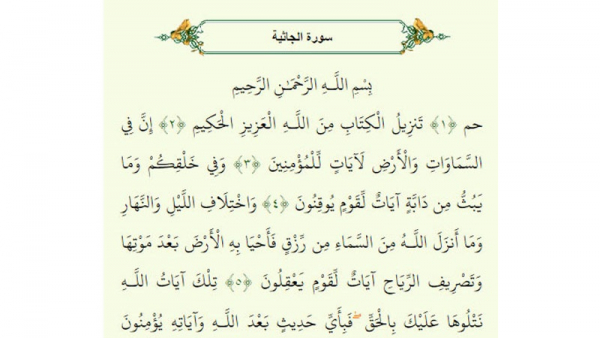 سورة الجاثية
بِسْمِ اللَّـهِ الرَّحْمَـٰنِ الرَّحِيمِ
حم ﴿١﴾ تَنزِيلُ الْكِتَابِ مِنَ اللَّـهِ الْعَزِيزِ الْحَكِيمِ ﴿٢﴾ إِنَّ فِي
السَّمَاوَاتِ وَالْأَرْضِ لَآيَاتٍ لِّلْمُؤْمِنِينَ ﴿٣﴾ وَفِي خَلْقِكُمْ وَمَا
يَبُثُّ مِن دَابَّةٍ آيَاتٌ لِّقَوْمٍ يُوقِنُونَ ﴿٤﴾ وَاخْتِلَافِ اللَّيْلِ وَالنَّهَارِ
وَمَا أَنزَلَ اللَّـهُ مِنَ السَّمَاءِ مِن رِّزْقٍ فَأَحْيَا بِهِ الْأَرْضَ بَعْدَ مَوْتِهَا
وَتَصْرِيفِ الرِّيَاحِ آيَاتٌ لِّقَوْمٍ يَعْقِلُونَ ﴿٥﴾ تِلْكَ آيَاتُ اللَّـهِ
نَتْلُوهَا عَلَيْكَ بِالْحَقِّ ۖ فَبِأَيِّ حَدِيثٍ بَعْدَ اللَّـهِ وَآيَاتِهِ يُؤْمِنُونَ